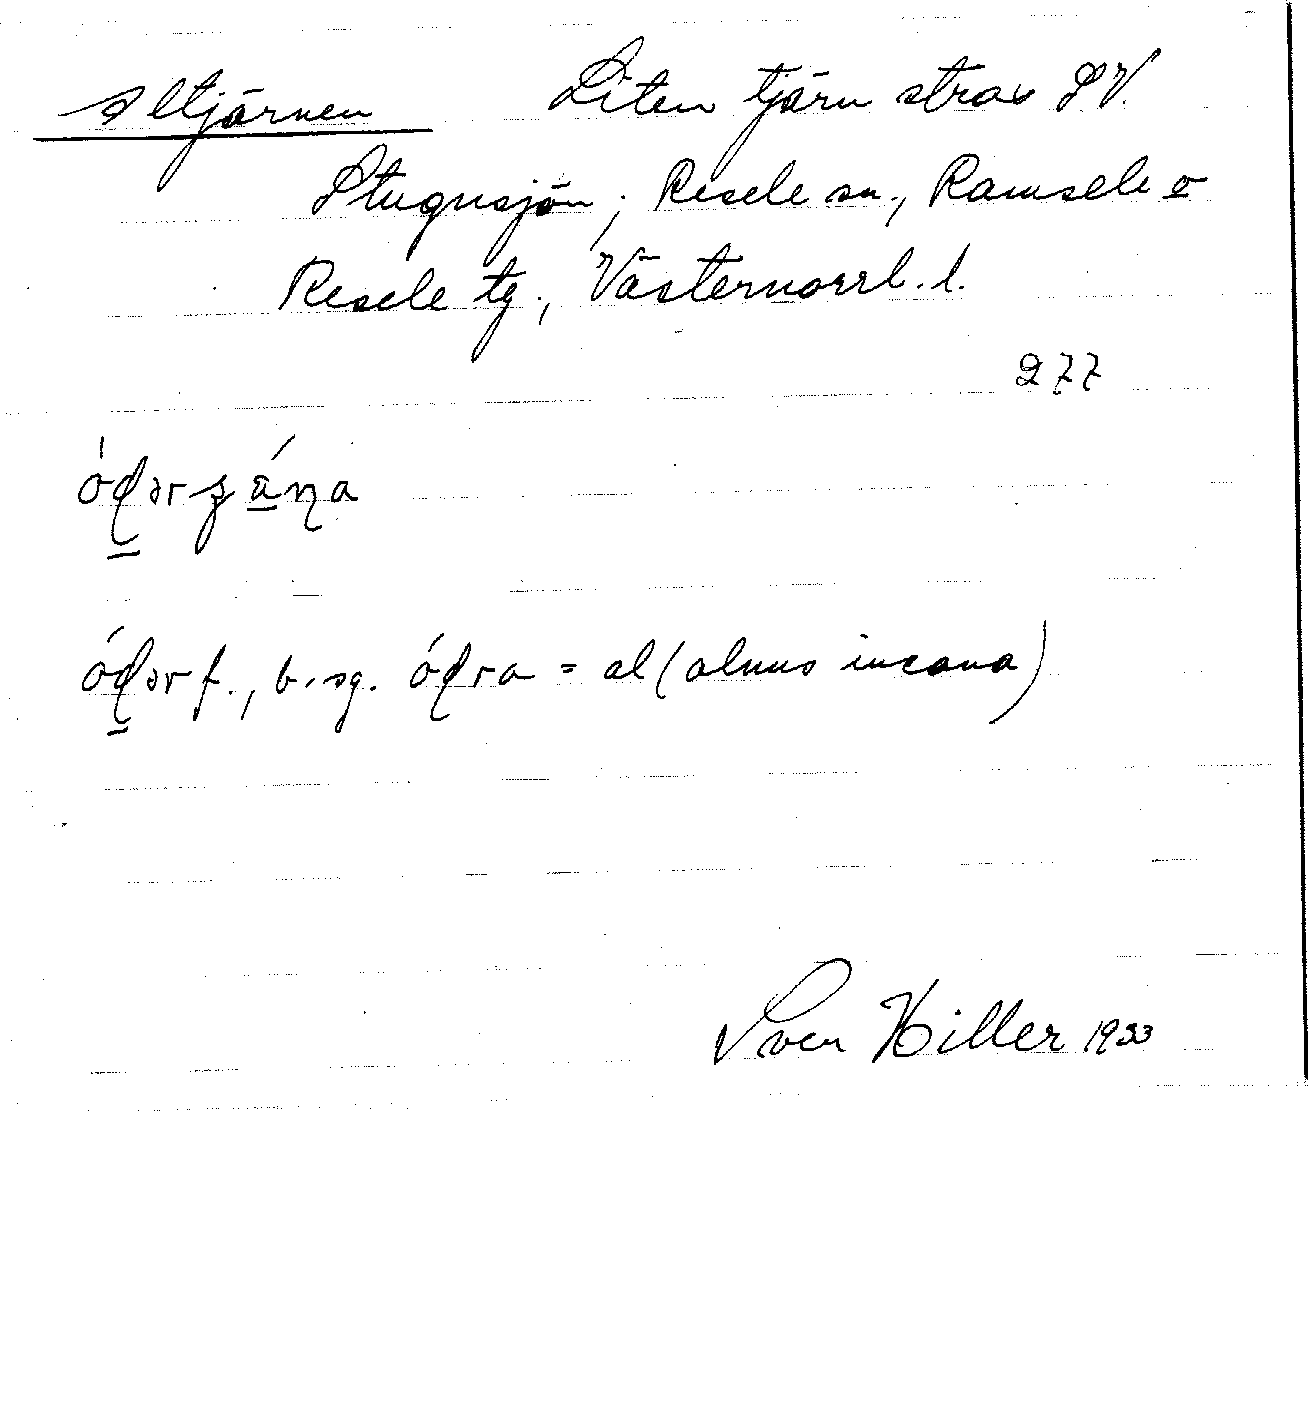 Altjärnen Liten tjärn strax SV.
Stugusjön, Resele sn., Ramsele o
Resele tg., Västernorrl. l.
277
f., b. sg. = al (alnus incana)
Sven Hiller 1933